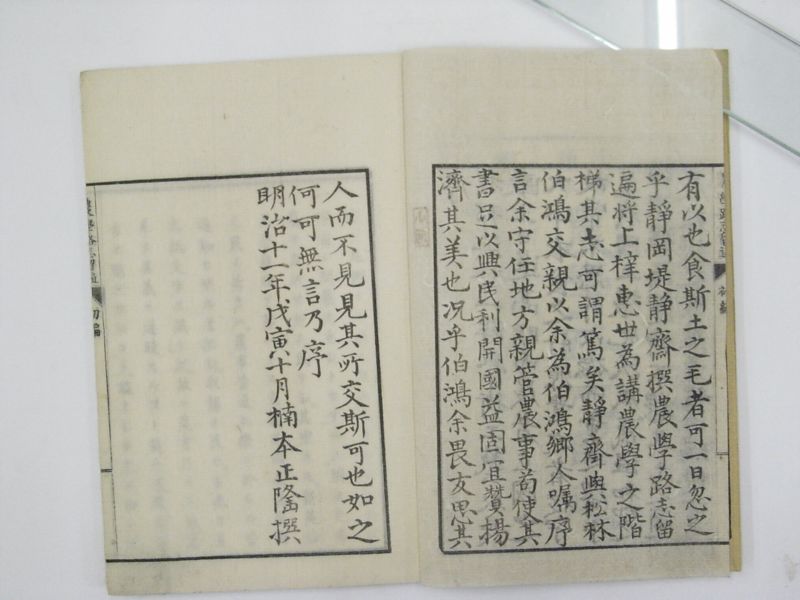 有以也食斯土之毛者可一日忽之
乎靜岡堤靜齋撰農學路志留
遍將上梓惠世為講農學之階
梯其志可謂篤矣靜齋與松林
伯鴻交親以余為伯鴻鄉人嘱序
言余守任地方親管農事苟使其
書足以興民利開國益固宜贊揚
濟其美也况乎伯鴻余畏友思其
人而不見見其所交斯可也如之
何可無言乃序
明治十一年戊寅十月楠本正隆撰
初編